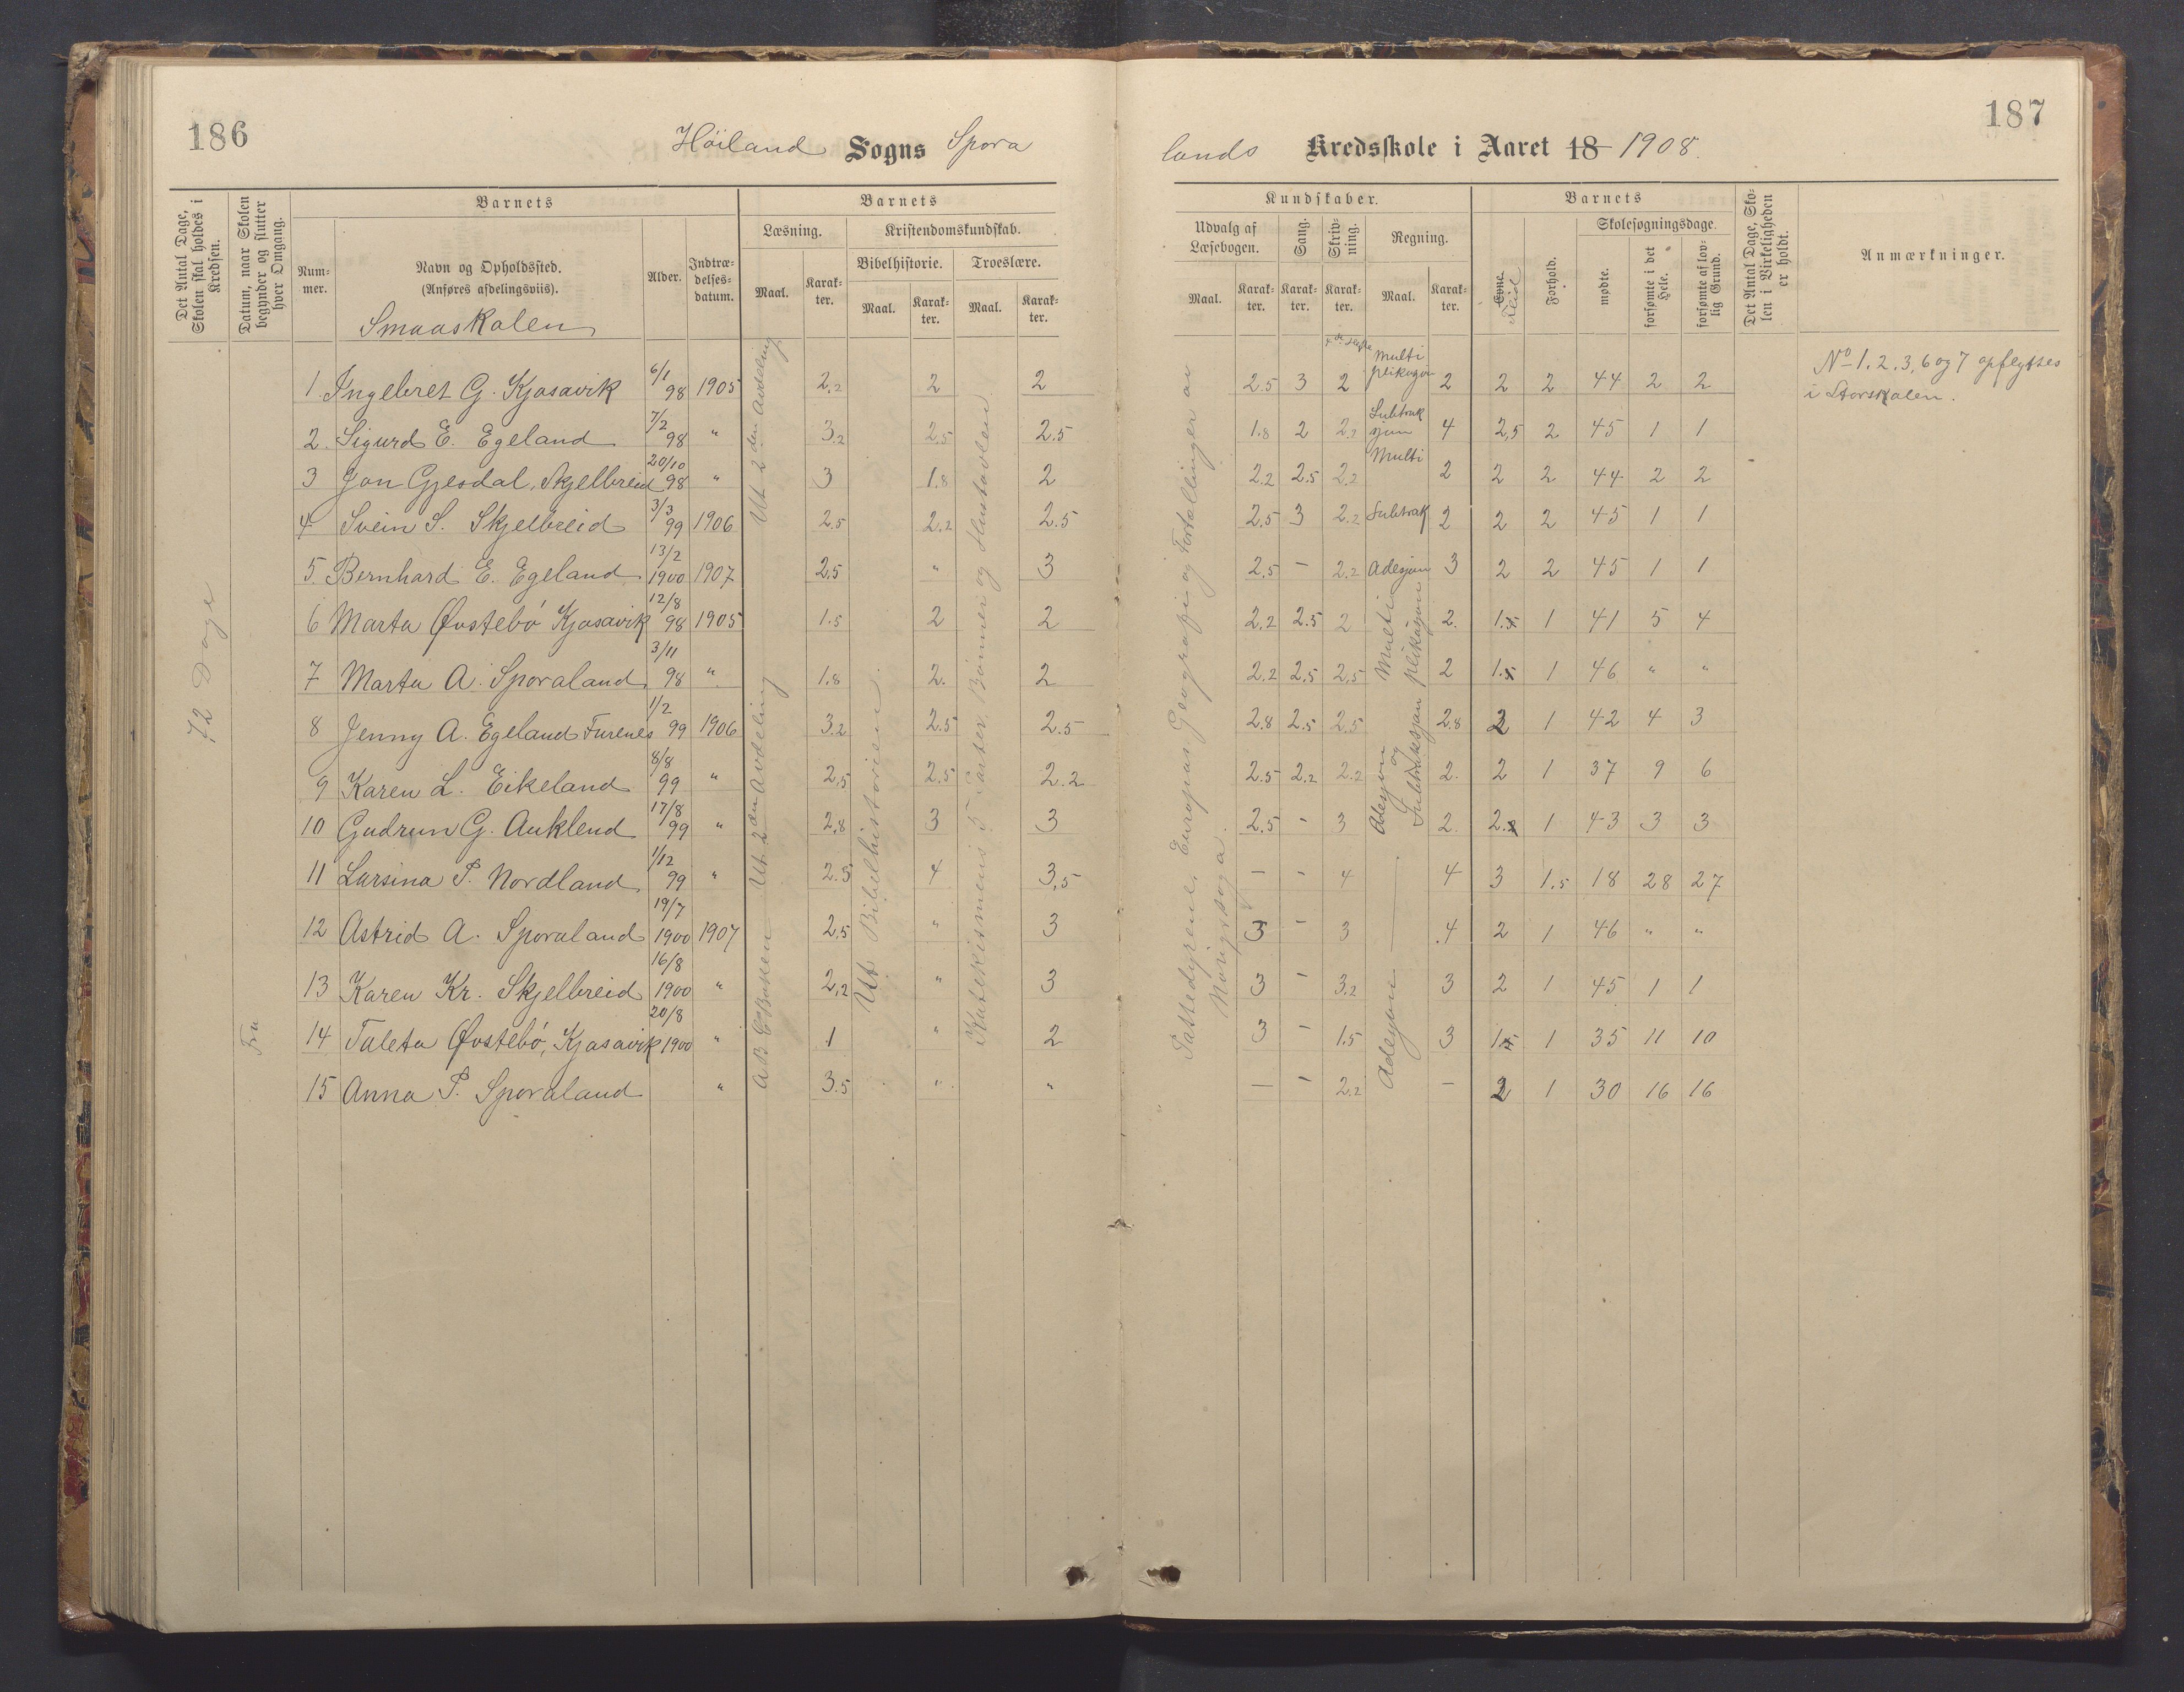 186
Høiland Sogns Spora
Det Antal Dage, Skolen skal holdes i Kredsen.
Datum, naar Skolen begynder og slutter hver Omgang.
Barnets
Barnets
Num-mer.
Navn og Opholdssted.
(Anføres afdelingsviis).
Smaaskolen
Alder.
Indtræ-delses-datum.
Læsning.
Kristendomskundskab.
Bibelhistorie.
Troeslære.
Maal.
Karak-ter.
Maal.
Karak-ter.
Maal.
Karak-ter.
72 Dage
Fra
1. Ingebret G. Kjosavik 6/1 98 1905 2.2 2 2
2. Sigurd E. Egeland 7/2 98 " 3.2 2.5 2.5
3 Jon Gjesdal, Skjelbreid 20/10 98 " 3 1.8 2
4 Svein S. Skjelbreid 3/3 99 1906 2.5 2.2 2.5
5. Bernhard E. Egeland 13/2 1900 1907 2.5 " 3
6 Marta Øvstebø Kjosavik 12/8 98 1905 1.5 2 2
7 Marta A. Sporaland 3/11 98 " 1.8 2. 2
8 Jenny A. Egeland Furenes 1/2 99 1906 3.2 2.5 2.5
9 Karen L. Eikeland 8/8 99 " 2.5 2.5 2.2
10 Gudrun G. Auklend 17/8 99 " 2.8 3 3
11 Larsina P. Nordland 1/12 99 " 2.5 4 3,5
12 Astrid A. Sporaland 19/7 1900 1907 2.5 " 3
13 Karen Kr. Skjelbreid 16/8 1900 " 2.2 " 3
14 Taleta Øvstebø, Kjosavik 20/8 1900 " 1 " 2
15 Anna P. Sporaland " 3.5 " "
Ut 2den Avdeling
A B C Boken Ut 2den Avdeling
Ut Bibelhistorien.
Katekismens 5 Parter, Bønner og Hustavlen
187
lands Kredsskole i Aaret 18 1908.
Kundskaber.
Barnets
Udvalg af Læsebogen.
Sang.
Skriv-ning.
Regning.
Skolesøgningsdage.
Maal.
Karak-ter.
Karak-ter.
Karak-ter.
Maal.
Karak-ter.
Evne
Flid
Forhold.
mødte.
forsømte i det Hele.
forsømte af lov-lig Grund.
Det Antal Dage, Sko-len i Virkeligheden er holdt.
Anmærkninger.
2.5 3 2 Multi plikasjon 2 2 2 44 2 2
1.8 2 2.2 Subtrak sjon 4 2,5 2 45 1 1
2.2 2.5 2.2 Multi 2 2 2 44 2 2
2,5 3 2.2 Subtrak 2 2 2 45 1 1
2,5 - 2.2 Adesjon 3 2 2 45 1 1
2.2 2.5 2 2. 1.5 1 41 5 4
2.2 2.5 2,5 2 1.5 1 46 " "
2.8 2.5 2.5 2.8 2 1 42 4 3
2.5 2.2 2.2 2. 2 1 37 9 6
2,5 ' 3 2. 2. 1 43 3 3
- ' 4 4 3 1.5 18 28 27
3 - 3 .4 2 1 46 " "
3 ' 3.2 3 2 1 45 1 1
3 ' 1.5 3 1. 1 35 11 10
- ' 2.2 - 2 1 30 16 16
Multi plikasjon
Adesjon og Subtraksjon
Adesjon
Pattedyrene, Europas Geografi og Fortællinger av Norigssoga.
No 1. 2. 3, 6 og 7 opflyttes
i Storskolen.